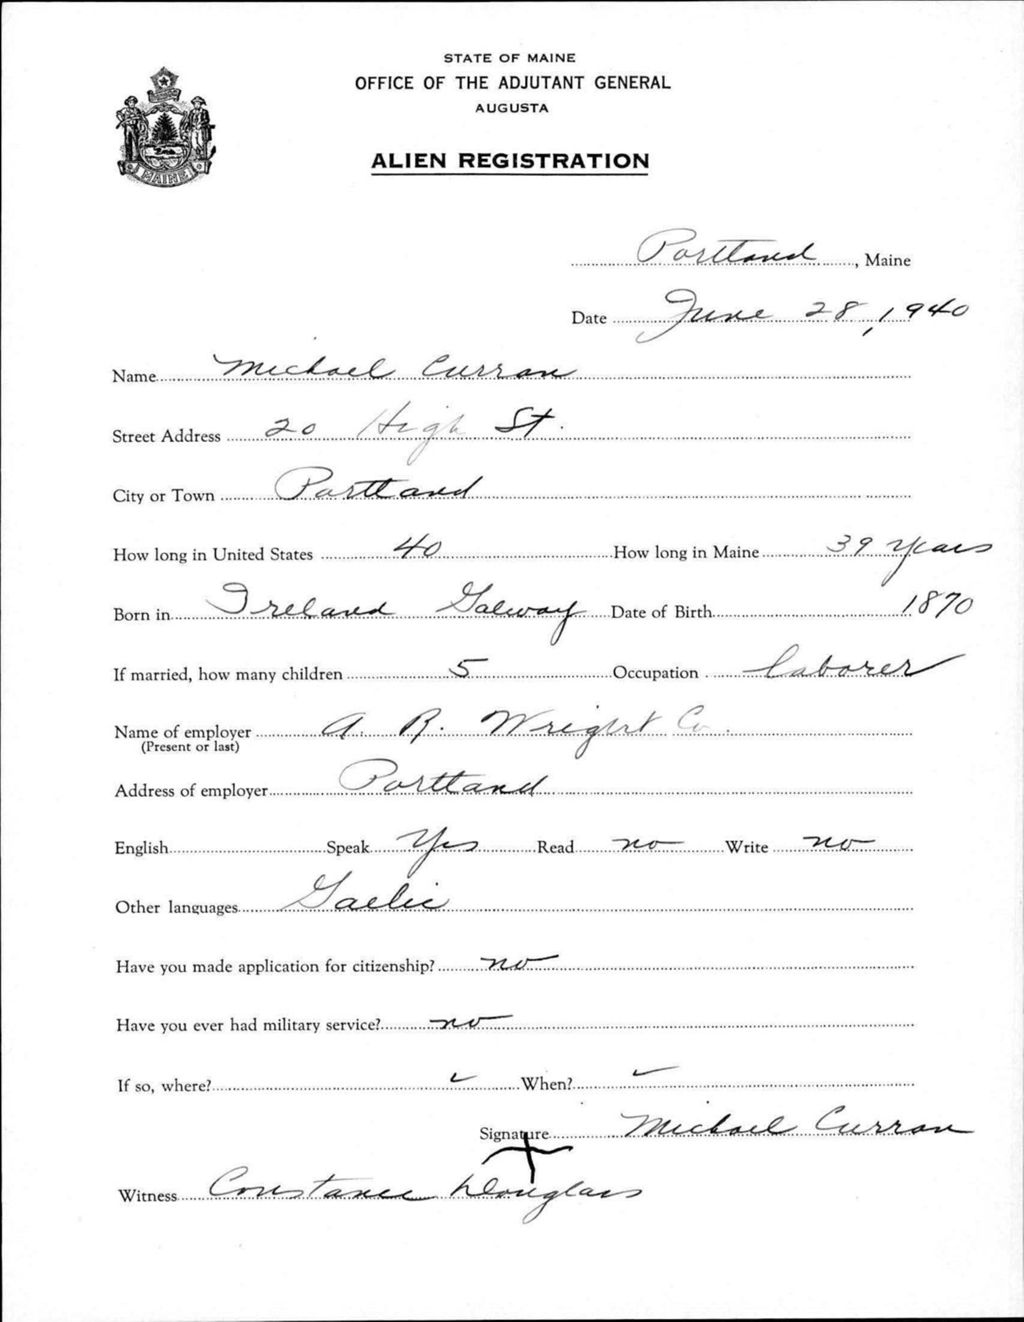 STATE OF MAINE
OFFICE OF THE ADJUTANT GENERAL
AUGUSTA
ALIEN REGISTRATION
MAINE
Portland, Maine
Date June 28, 1940
Name Michael Curran
Street Address 20 High St.
City or Town Portland
How long in United States 40 How long in Maine 39 years
Born in Ireland Galway Date of Birth 1870
If married, how many children 5 Occupation laborer
Name of employer A. R. Wright Co.
(Present or last)
Address of employer Portland
English Speak Yes Read no Write no
Other languages Gaelic
Have you made application for citizenship? no
Have you ever had military service? no
If so, where? ✓ When? ✓
Signature Michael Curran
X
Witness Constance Douglass